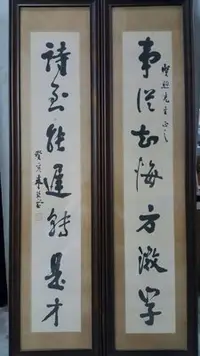 事從知悔方徵學
詩到能遲轉是才